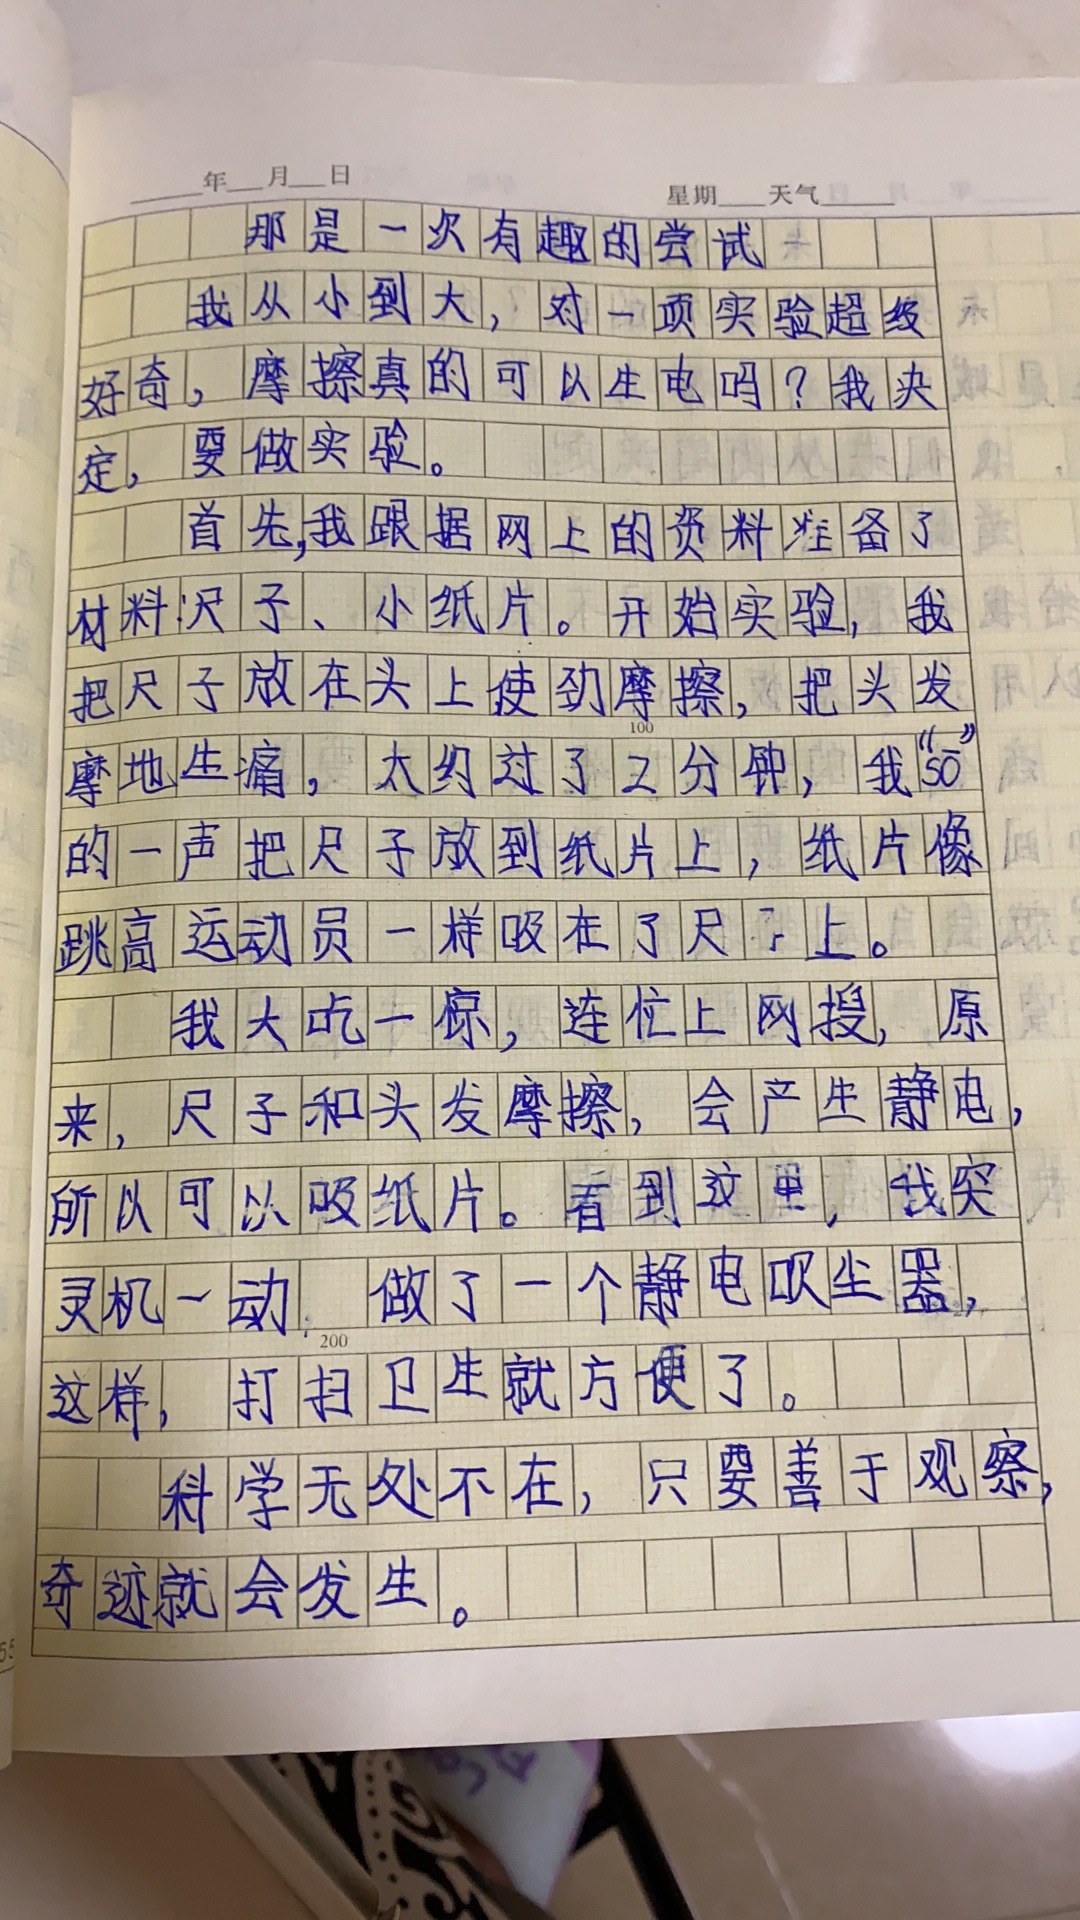 年 月 日
星期 天气
那是一次有趣的尝试
我从小到大，对一项实验超级
好奇，摩擦真的可以生电吗？我决
定，要做实验。
首先，我跟据网上的资料准备了
材料：尺子、小纸片。开始实验，我
把尺子放在头上使劲摩擦，把头发
100
摩地生痛，大约过了2分钟，我“so”
的一声把尺子放到纸片上，纸片像
跳高运动员一样吸在了尺子上。
我大吃一惊，连忙上网搜，原
来，尺子和头发摩擦，会产生静电，
所以可以吸纸片。看到这里，我突
灵机一动，做了一个静电吹尘器，
200
这样，打扫卫生就方便了。
科学无处不在，只要善于观察，
奇迹就会发生。